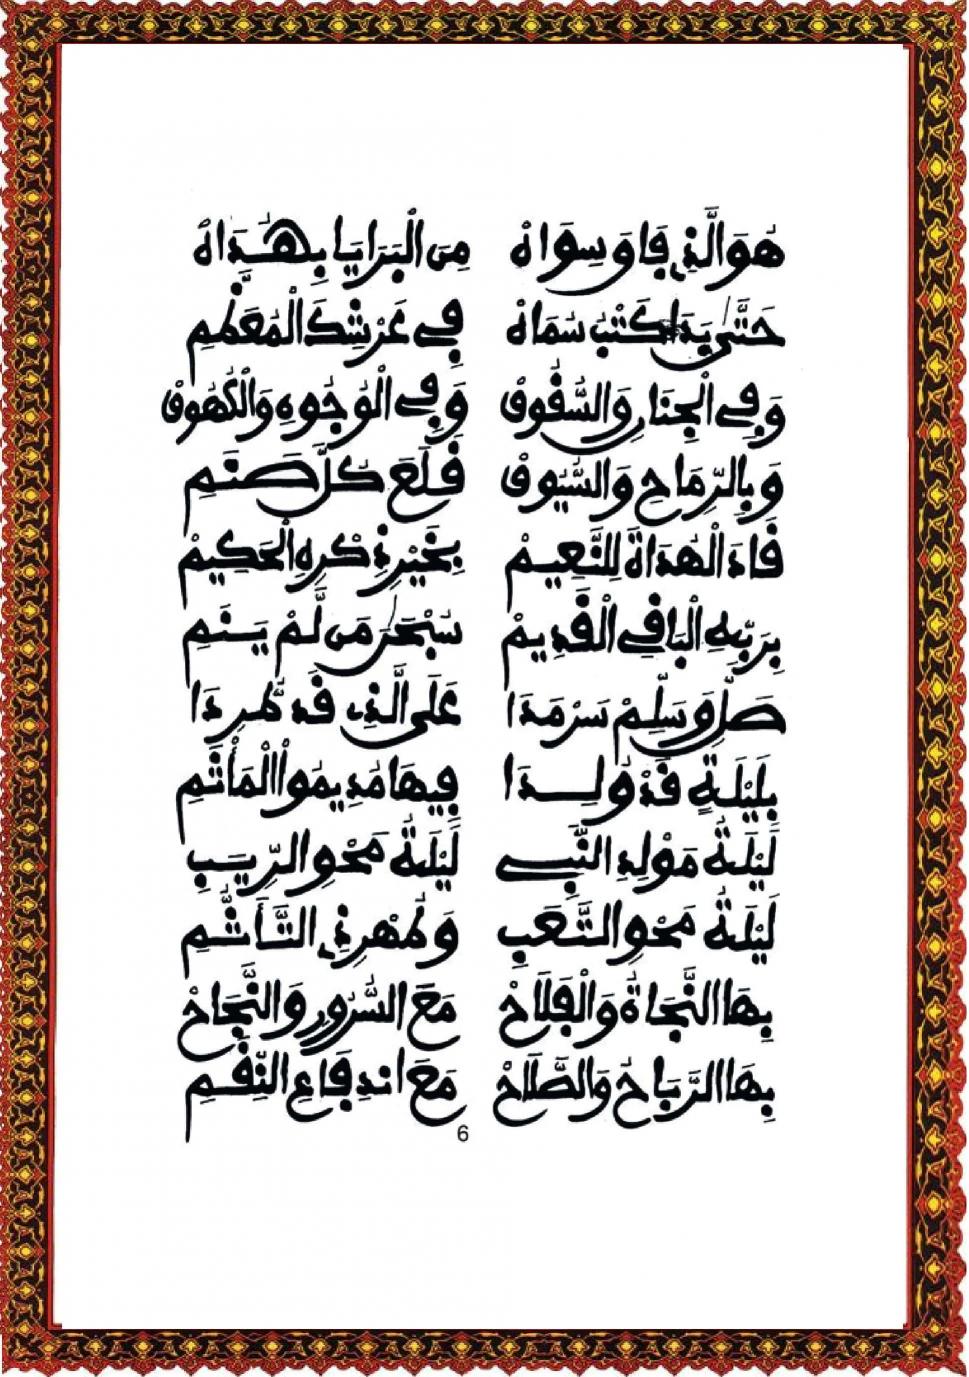 هُوَ الَّذِي فَاقَ سِوَاهْ مِنَ الْبَرَايَا بِهُدَاهْ
حَتَّى بَدَا كَتْبُ سُمَاهْ فِي عَرْشِكَ الْمُعَظَّمِ
وَفِي الْجِنَانِ وَالسُّقُوفْ وَفِي الْوُجُوهِ وَالْكُهُوفْ
وَبِالرِّمَاحِ وَالسُّيُوفْ قَلَعَ كُلَّ صَنَمِ
قَادَ الْهُدَاةَ لِلنَّعِيمْ بِخَيْرِ ذِكْرِهِ الْحَكِيمْ
بِرَبِّهِ الْبَاقِي الْقَدِيمْ سُبْحَانَ مَن لَّمْ يَنَمِ
صَلِّ وَسَلِّمْ سَرْمَدَا عَلَى الَّذِي قَد طَّرَدَا
بِلَيْلَةٍ قَدْ وُلِدَا فِيهَا مُدِيمُوا الْمَأْثَمِ
لَيْلَةُ مَوْلِدِ النَّبِي لَيْلَةُ مَحْوِ الرِّيَبِ
لَيْلَةُ مَحْوِ التَّعَبِ وَطُهْرِ ذِي التَّأَثُّمِ
بِهَا النَّجَاةُ وَالْفَلَاحْ مَعَ السُّرُورِ وَالنَّجَاحْ
بِهَا الرَّبَاحُ وَالصَّلَاحْ مَعَ انْدِفَاعِ النِّقَمِ
6